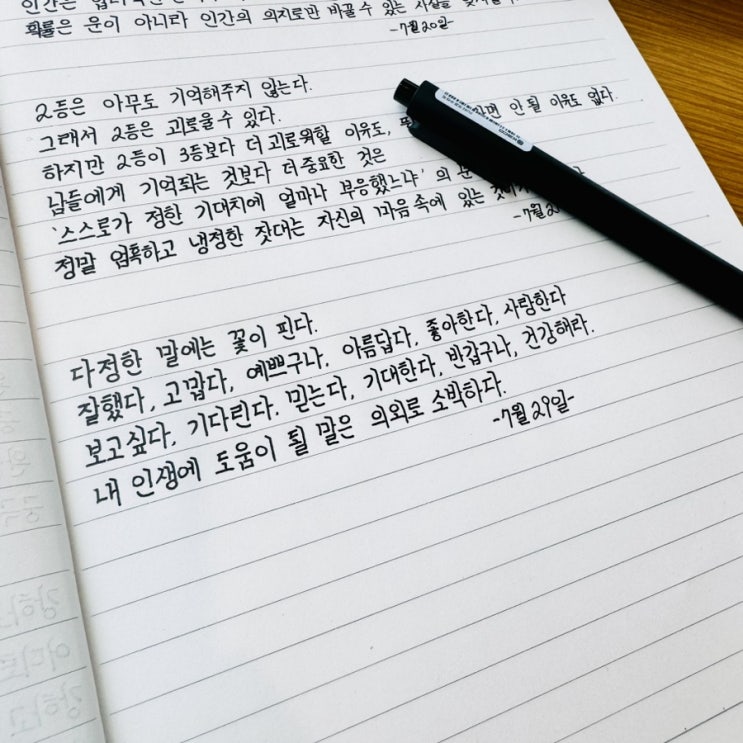 인간은
확률은 운이 아니라 인간의 의지로만 바꿀 수 있는 사실을
-7월 20일-
2등은 아무도 기억해주지 않는다.
그래서 2등은 괴로울 수 있다.
하지만 2등이 3등보다 더 괴로워할 이유도, 안 될 이유도 없다.
남들에게 기억되는 것보다 더 중요한 것은
'스스로가 정한 기대치에 얼마나 부응했느냐' 의
정말 엄혹하고 냉정한 잣대는 자신의 마음 속에 있는
-7월
다정한 말에는 꽃이 핀다.
잘했다, 고맙다, 예쁘구나. 아름답다, 좋아한다, 사랑한다
보고싶다, 기다린다. 믿는다, 기대한다, 반갑구나, 건강해라.
내 인생에 도움이 될 말은 의외로 소박하다.
-7월 29일-